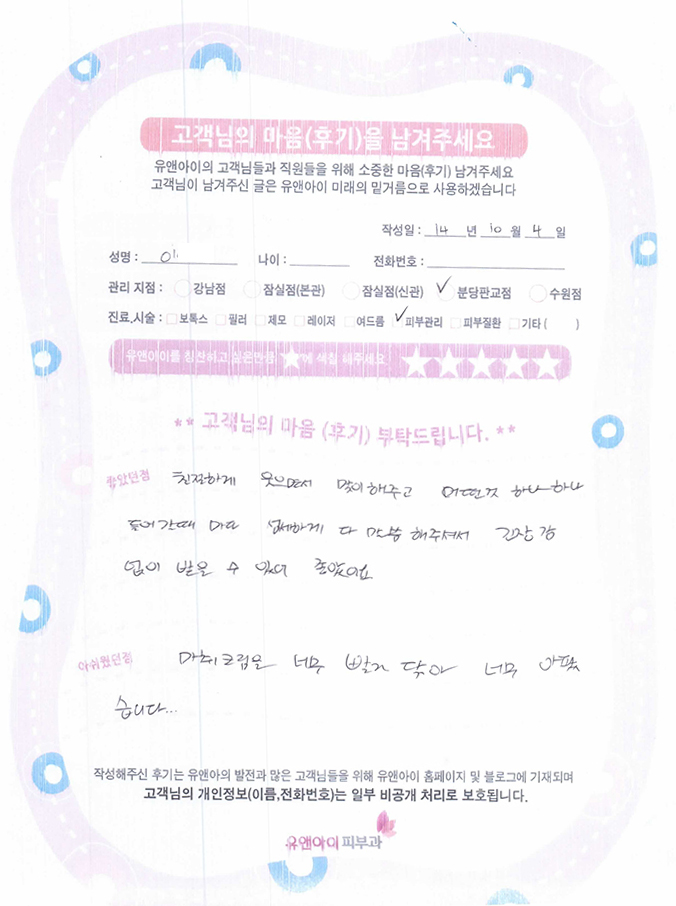 고객님의 마음(후기)을 남겨주세요
유앤아이의 고객님들과 직원들을 위해 소중한 마음(후기) 남겨주세요
고객님이 남겨주신 글은 유앤아이 미래의 밑거름으로 사용하겠습니다
작성일 : 14 년 10 월 4 일
성명 : 이 나이 : 전화번호 :
관리 지점 : 강남점 잠실점(본관) 잠실점(신관) ✓ 분당판교점 수원점
진료,시술 : 보톡스 필러 제모 레이저 여드름 ✓ 피부관리 피부질환 기타 ( )
유앤아이를 칭찬하고 싶은만큼 ★에 색칠 해주세요 ★★★★★
** 고객님의 마음 (후기) 부탁드립니다. **
좋았던점 친절하게 웃으면서 맞이해주고 어떤것 하나하나
들어간때 마다 섬세하게 다 말씀 해주셔서 긴장감
없이 받을 수 있어 좋았어요
아쉬웠던점 마취크림을 너무 빨리 닦아 너무 아팠
습니다...
작성해주신 후기는 유앤아의 발전과 많은 고객님들을 위해 유앤아이 홈페이지 및 블로그에 기재되며
고객님의 개인정보(이름,전화번호)는 일부 비공개 처리로 보호됩니다.
유앤아이피부과